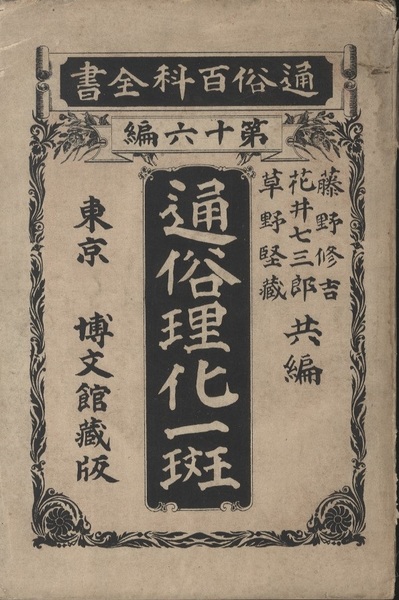 通俗百科全書
第十六編
藤野修吉
花井七三郎
草野堅藏
共編
通俗理化一斑
東京 博文館藏版